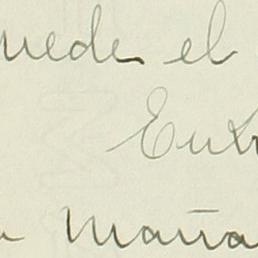 uede el
Entr
Mañana